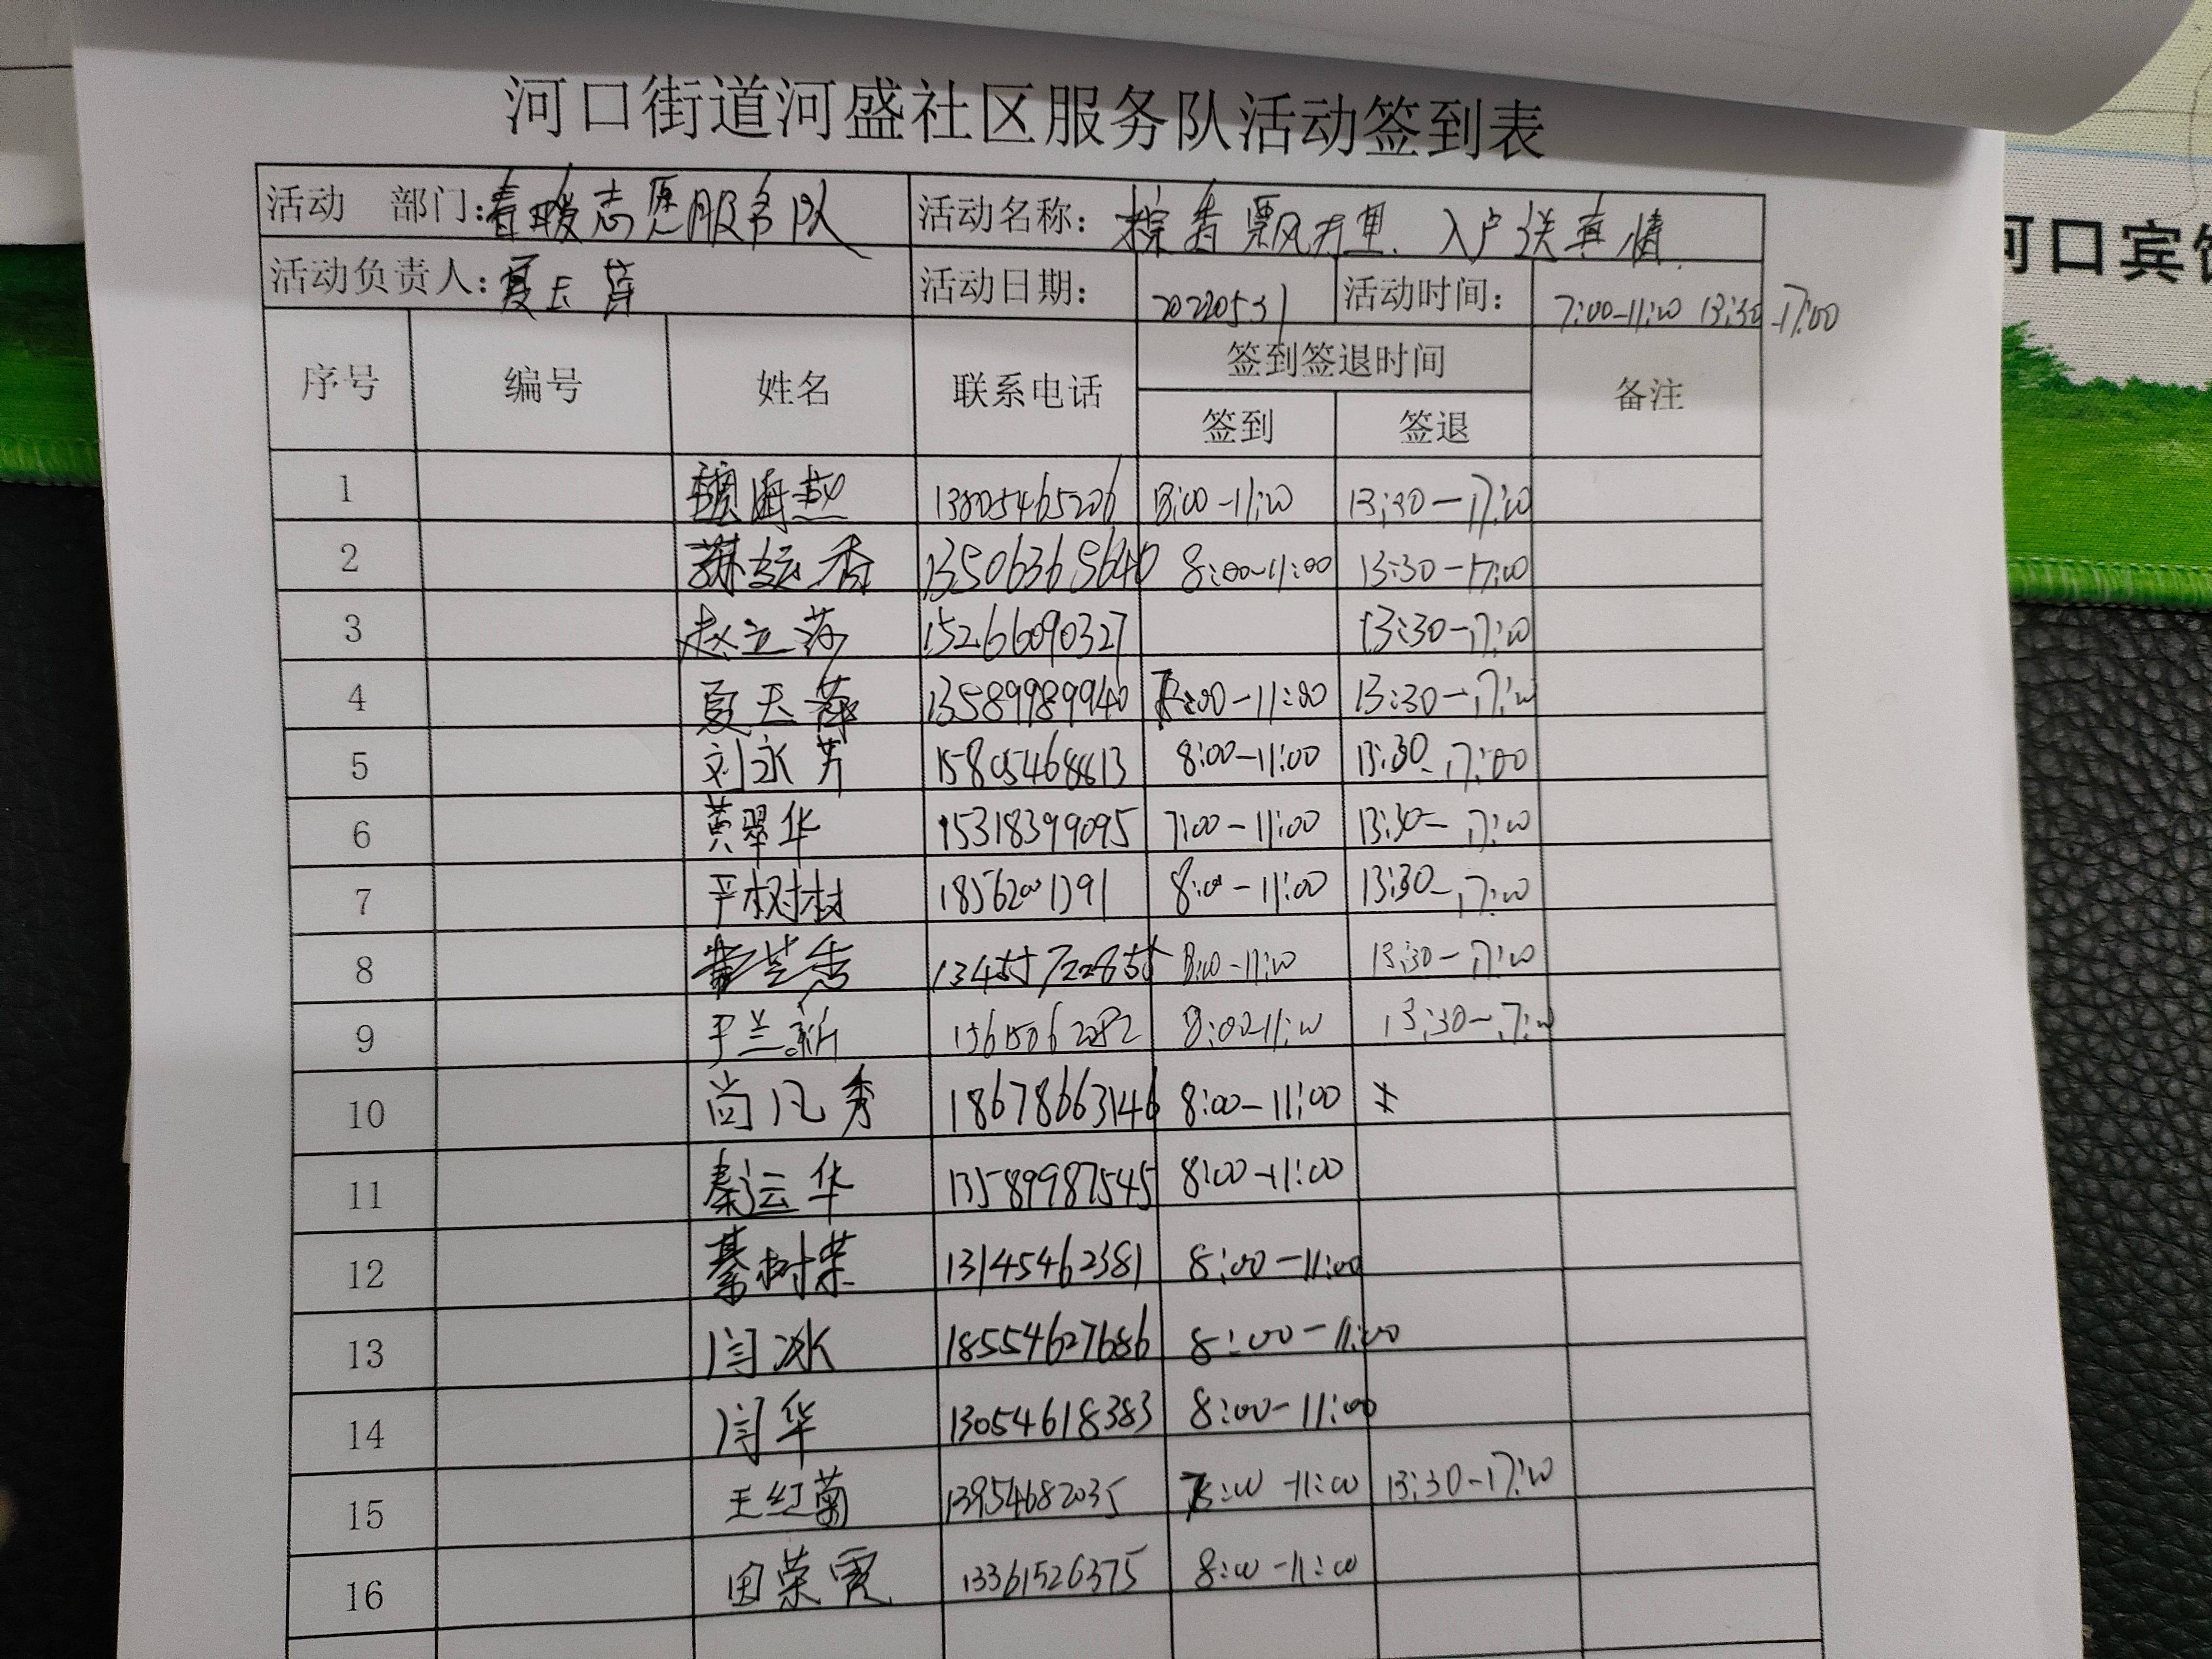 河口街道河盛社区服务队活动签到表
活动 部门：春暖志愿服务队 活动名称： 粽香飘万里 入户送真情
活动负责人： 活动日期： 20220531 活动时间： 7:00-11:00 13:30-17:00
序号 编号 姓名 联系电话 签到签退时间 备注
签到 签退
1 13805465206 8:00-11:00 13:30-17:00
2 13506365640 8:00-11:00 13:30-17:00
3 15266090327 13:30-17:00
4 13589989940 13:30-17:00
5 刘永芳 15805468613 8:00-11:00 13:30-17:00
6 黄翠华 15318399095 7:00-11:00 13:30-17:00
7 18562001391 8:00-11:00 13:30-17:00
8 8:00-11:00 13:30-17:00
9 于兰新 8:00-11:00 13:30-17:00
10 尚凡秀 18678663146 8:00-11:00
11 秦运华 13589987545 8:00-11:00
12 綦树荣 13145462381 8:00-11:00
13 闫冰 18554627686 8:00-11:00
14 闫华 13054618383 8:00-11:00
15 王红菊 13954682035 13:30-17:00
16 田荣霞 13361526375 8:00-11:00
河口宾馆